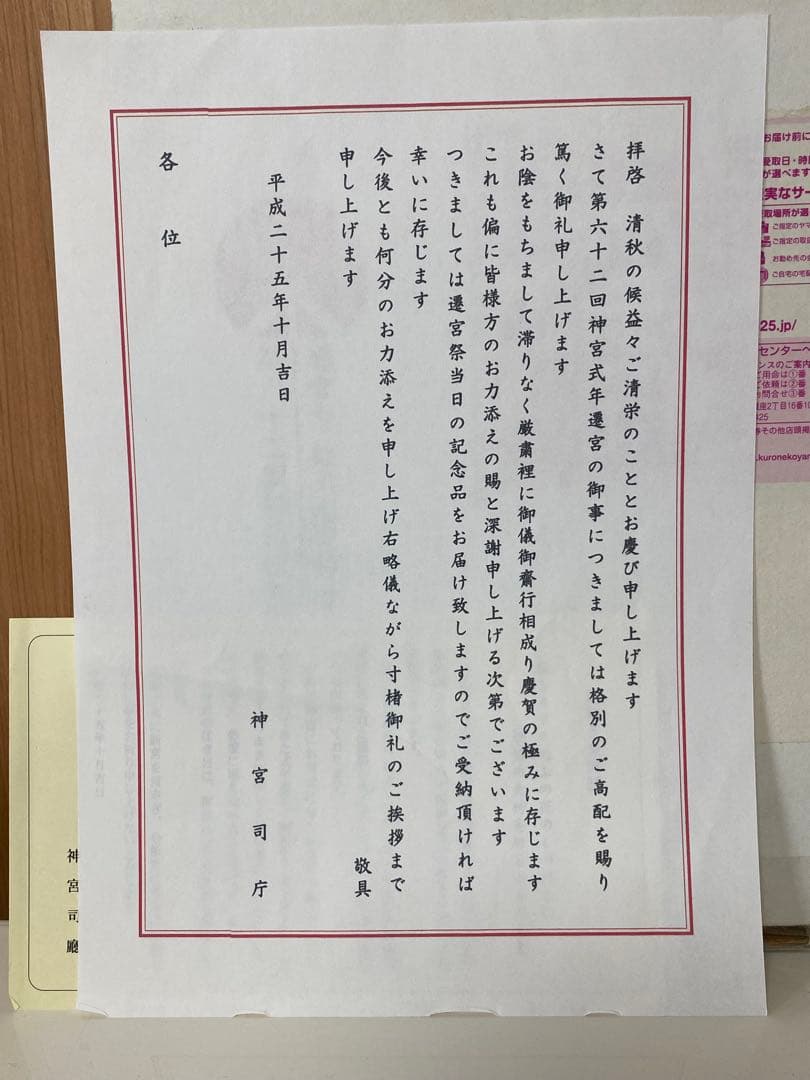 拝啓　清秋の候益々ご清栄のこととお慶び申し上げます
さて第六十二回神宮式年遷宮の御事につきましては格別のご高配を賜り
篤く御礼申し上げます
お陰をもちまして滞りなく厳粛裡に御儀御齋行相成り慶賀の極みに存じます
これも偏に皆様方のお力添えの賜と深謝申し上げる次第でございます
つきましては遷宮祭当日の記念品をお届け致しますのでご受納頂ければ
幸いに存じます
今後とも何分のお力添えを申し上げ右略儀ながら寸楮御礼のご挨拶まで
申し上げます
敬具
平成二十五年十月吉日
神宮司庁
各位
神宮司廳
お届け前に
受取日・時
が選べます
実なサー
取場所が選
ご指定のヤマ
ご指定の取
お勤め先の
ご自宅の宅
25.jp/
センターへ
ンスのご案内
ご用会は①番
ご依頼は②番
お問合せ③番
座2丁目16番10
325
券その他店頭掲
.kuronekoyam